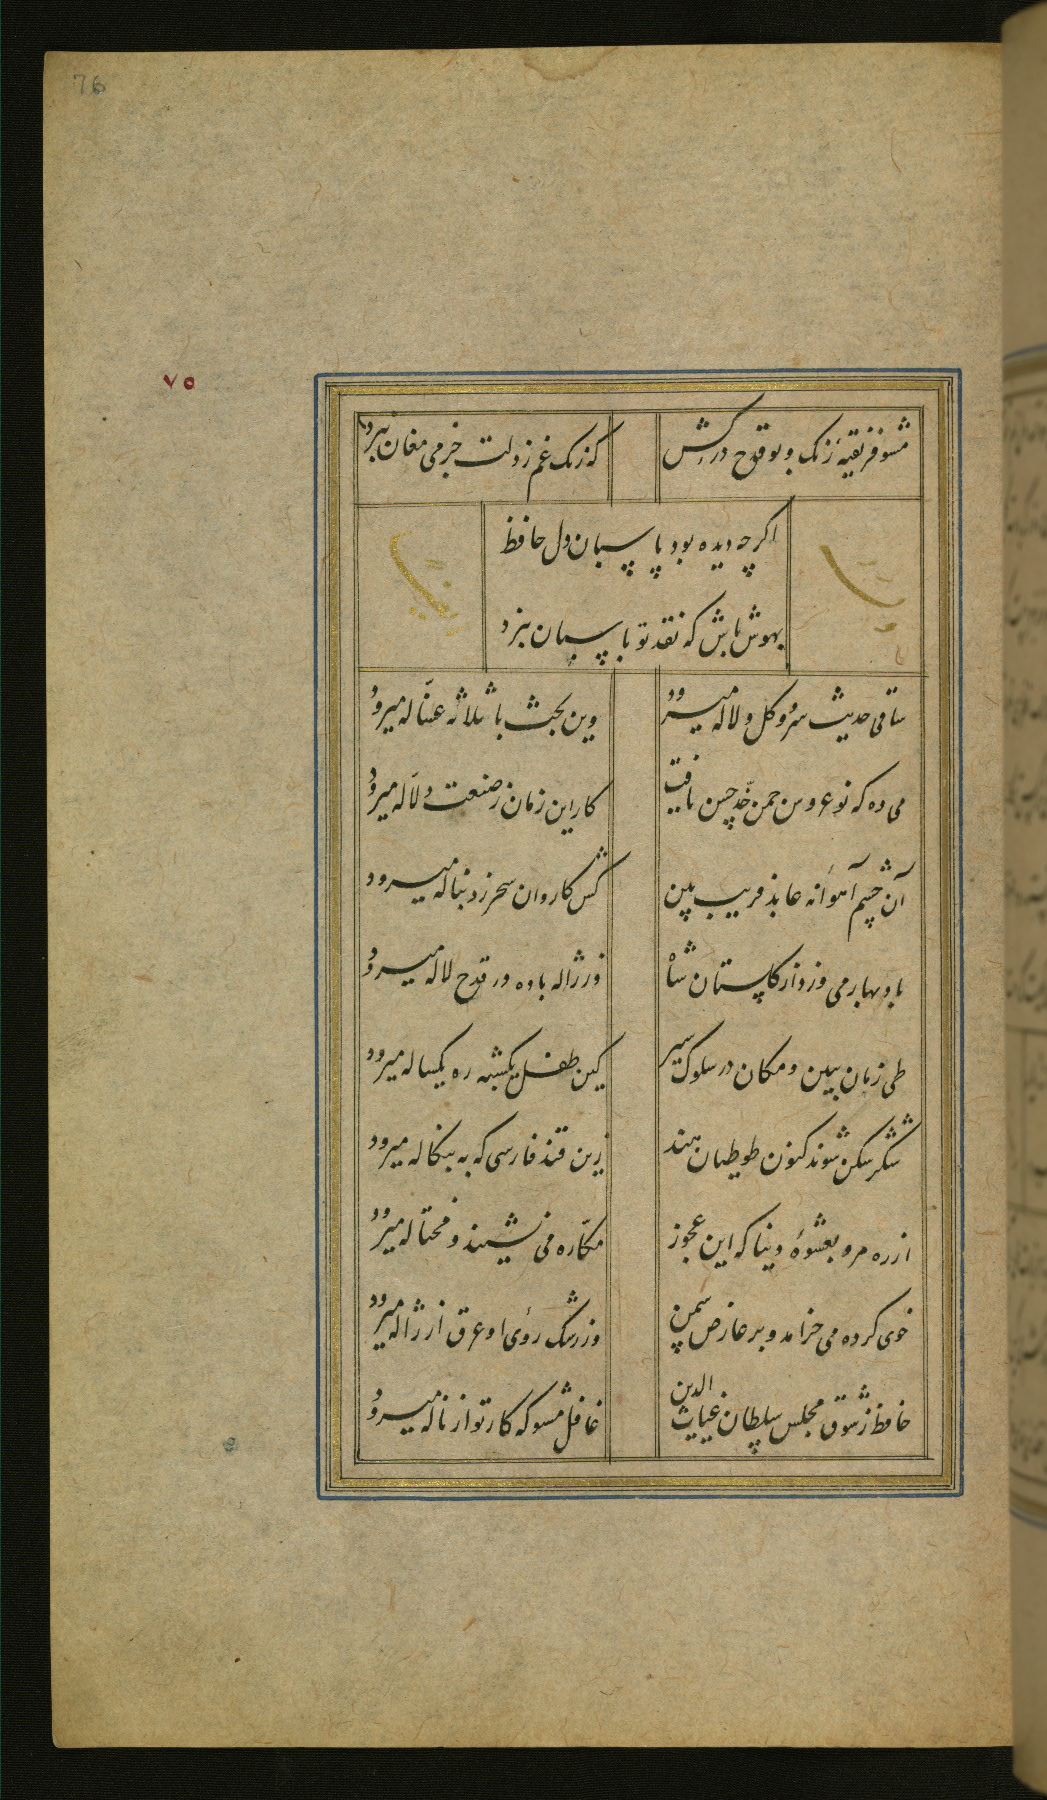 76
٧٥
مشو فریفتهٔ رنک و بو قدح درکش
که زنک غم ز دلت جز می مغان نبرد
اکرچه دیده بود پاسبان دل حافظ
بهوش باش که نقد تو پاسبان نبرد
ساقی حدیث سرو و کل و لاله میرود
وین بحث با ثلاثه غسّاله میرود
می ده که نو عروس چمن حدّ حسن یافت
کار این زمان ز صنعت دلّاله میرود
آن چشم آهوانه عابد فریب بین
کش کاروان سحر ز دنباله میرود
باد بهار می وزد از کلستان شاه
وز ژاله باده در قدح لاله میرود
طی زمان ببین و مکان در سلوک سیر
کین طفل یکشبه ره یکساله میرود
شکر شکن شوند کنون طوطیان هند
زین قند فارسی که به بنکاله میرود
از ره مرو بعشوهٔ دنیا که این عجوز
مکّاره می نشیند و محتاله میرود
خوی کرده می خرامد و بر عارض سمن
وز رشک روی او عرق از ژاله میرود
حافظ ز شوق مجلس سلطان غیاث الدین
غافل مشو که کار تو از ناله میرود